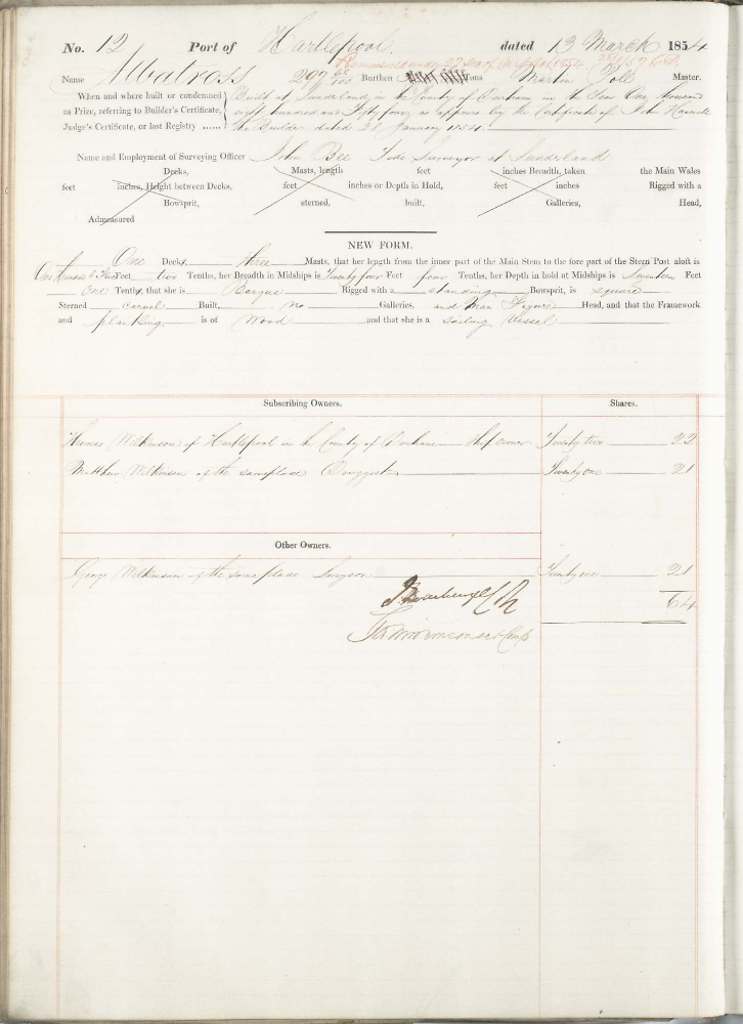 No. 12 Port of Hartlepool dated 13 March 1854
Name Albatross 297 Burthen Tons Martin Toll Master.
When and where built or condemned Built at Sunderland in the County of Durham in the Year One thousand
as Prize, referring to Builder's Certificate, eight hundred and Fifty four as appears by the Certificate of John
Judge's Certificate, or last Registry ...... the Builder dated 28 January 1854
Name and Employment of Surveying Officer John Bee Tide Surveyor at Sunderland
Decks, Masts, length inches Breadth, taken the Main Wales
feet inches, Height between Decks, feet inches or Depth in Hold, feet inches Rigged with a
Bowsprit, sterned, built, Galleries, Head,
Admeasured
NEW FORM.
One Decks, three Masts, that her length from the inner part of the Main Stem to the fore part of the Stern Post aloft is
One hundred & Feet two Tenths, her Breadth in Midships is Twenty four Feet four Tenths, her Depth in hold at Midships is Seventeen Feet
One Tenths, that she is Barque Rigged with a standing Bowsprit, is square
Sterned carvel Built, No Galleries, and Man Figure Head, and that the Framework
and planking is of Wood and that she is a Sailing Vessel
Subscribing Owners. Shares.
Thomas Wilkinson of Hartlepool in the County of Durham Shipowner Twenty two 22
Matthew Wilkinson of the same place Druggist Twenty one 21
Other Owners.
George Wilkinson of the same place Surgeon Twenty one 21
64